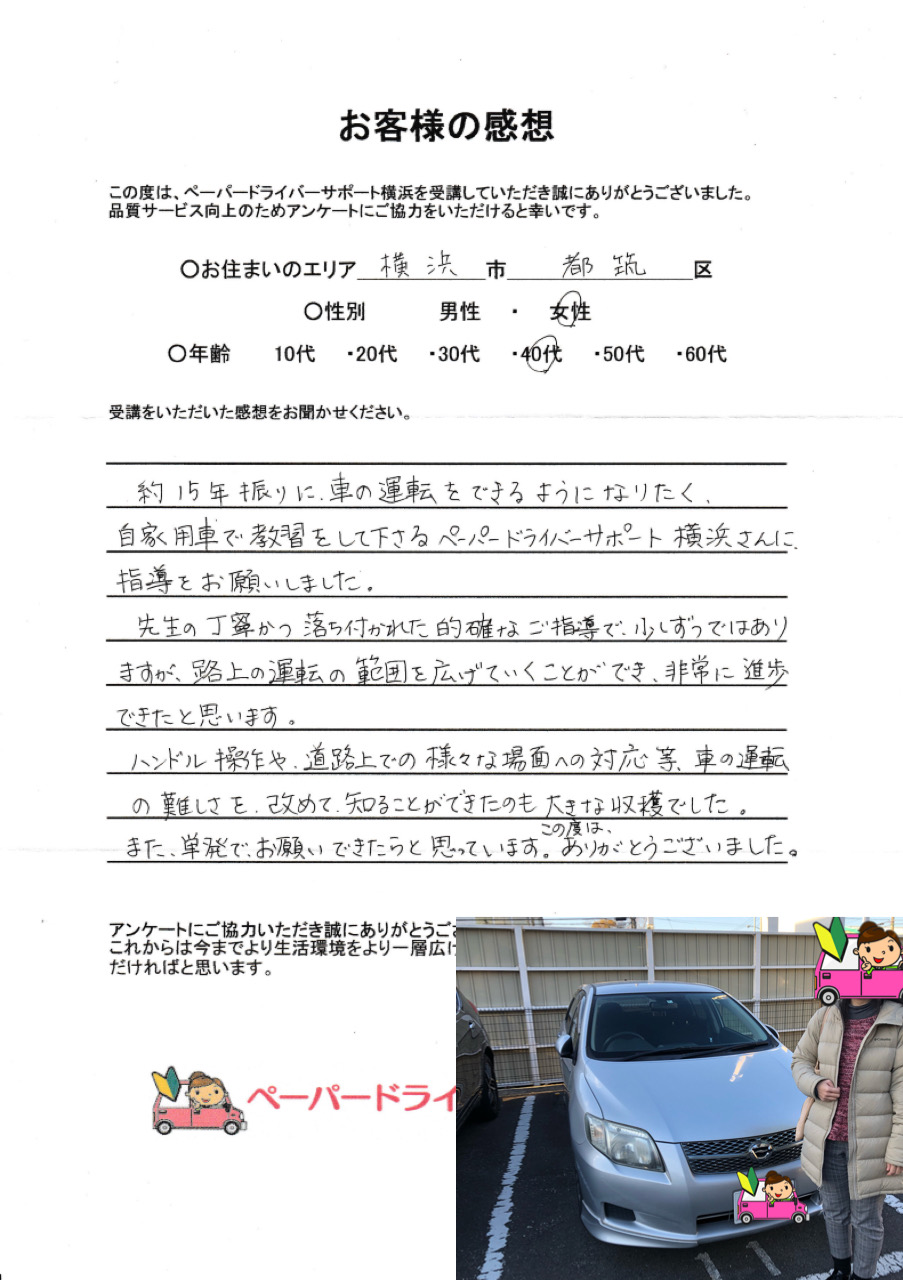 お客様の感想
この度は、ペーパードライバーサポート横浜を受講していただき誠にありがとうございました。
品質サービス向上のためアンケートにご協力をいただけると幸いです。
〇お住まいのエリア 横浜 市 都筑 区
〇性別 男性 ・ 女性
〇年齢 10代 ・20代 ・30代 ・40代 ・50代 ・60代
受講をいただいた感想をお聞かせください。
約15年振りに、車の運転をできるようになりたく、
自家用車で教習をして下さるペーパードライバーサポート横浜さんに、
指導をお願いしました。
先生の丁寧かつ落ち付かれた的確なご指導で、少しずつではあり
ますが、路上の運転の範囲を広げていくことができ、非常に進歩
できたと思います。
ハンドル操作や、道路上での様々な場面への対応等、車の運転
の難しさを、改めて、知ることができたのも大きな収穫でした。
この度は、
また、単発で、お願いできたらと思っています。ありがとうございました。
アンケートにご協力いただき誠にありがとうご
これからは今までより生活環境をより一層広げ
だければと思います。
ペーパードライ